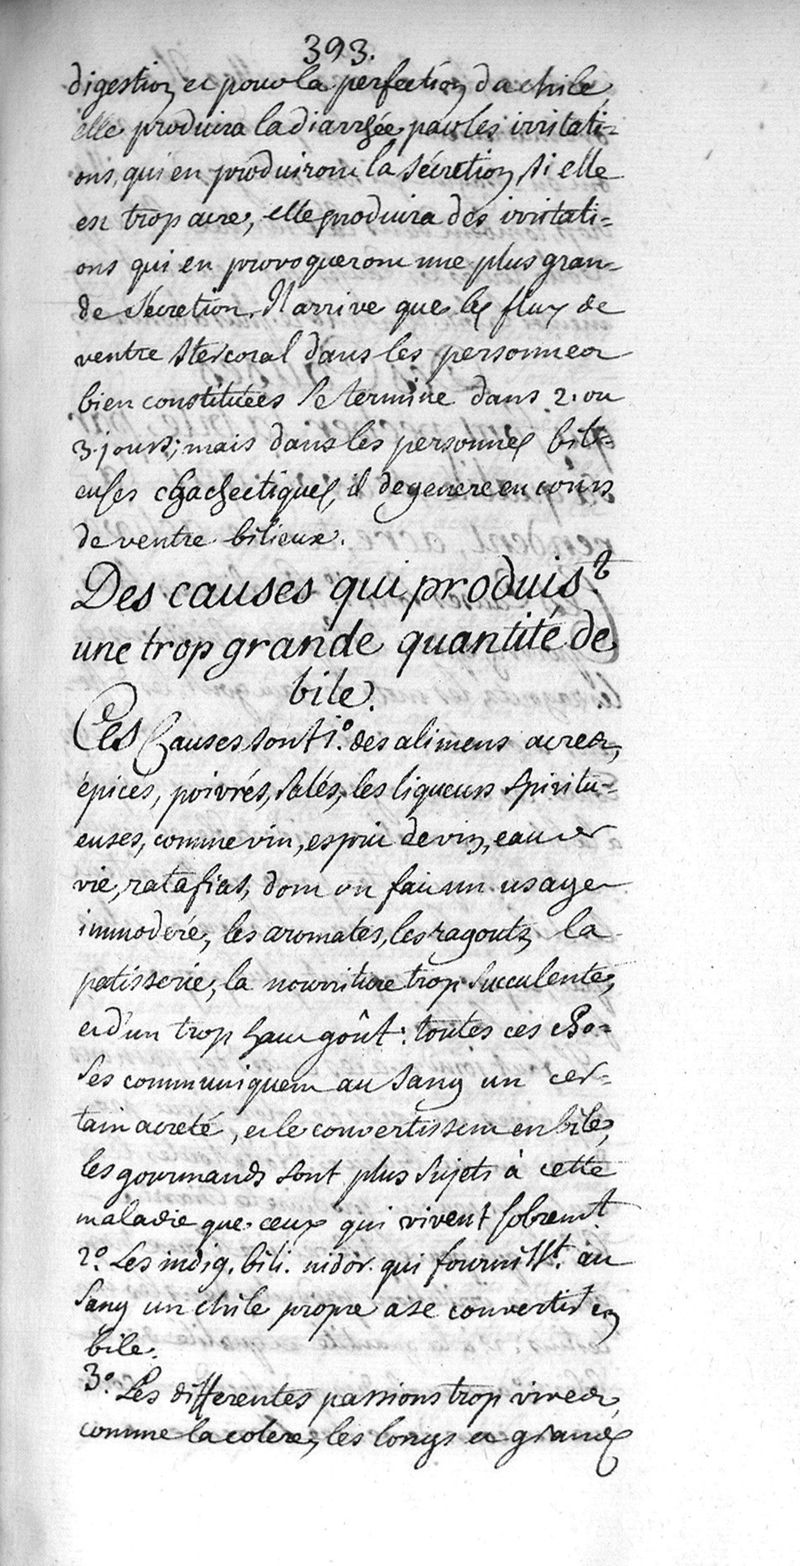 393.
digestion et pour la perfection du chile,
elle produira la diarrhée par les irritati=
ons, qui en produiront la sécretion, si elle
est trop acre, elle produira des irritati=
ons qui en provoqueront une plus gran=
de sécretion. Il arrive que les flux de
ventre stercoral dans les personnes
bien constituées se termine dans 2. ou
3. jours; mais dans les personnes bili=
euses chachectiques, il degenere en cours
de ventre bilieux.
Des causes qui produist
une trop grande quantité de
bile.
Ces Causes sont 1.º des alimens acres,
épicés, poivrés, salés, les liqueurs spiritu=
euses, comme vin, esprit de vin, eau de
vie, ratafias, dont on fait un usage
immodéré, les aromates, les ragouts, la
patisserie, la nourriture trop succulente,
et d'un trop haut goût: toutes ces cho=
ses communiquent au sang un cer=
tain acreté, et le convertissent en bile,
les gourmands sont plus sujets à cette
maladie que ceux qui vivent sobremt.
2.º Les indig. bili. nidor. qui fournisst. au
sang un chile propre a se convertir en
bile.
3.º Les differentes passions trop vives,
comme la colere, les longs et grands